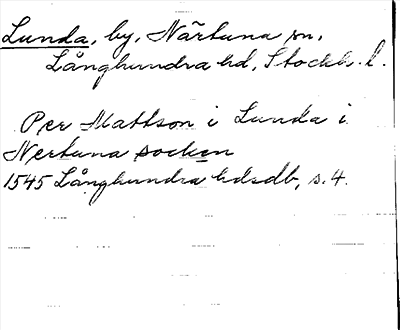 Lunda, by, Närtuna sn,
Långhundra hd, Stockh. l.
Per Mattson i Lunda i
Nertuna socken
1545 Långhundra hdsdb, s. 4.